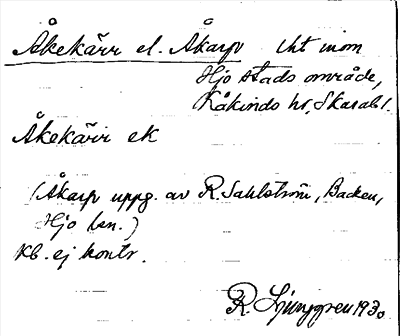 Åkekärr el. Åkarp lht inom
Hjo stads område,
Kåkinds hd, Skarabl.
Åkekärr ek
(Åkarp uppg. av R. Sahlström, Backen,
Hjo lsn.)
Kb. ej kontr.
R. Ljunggren 1930